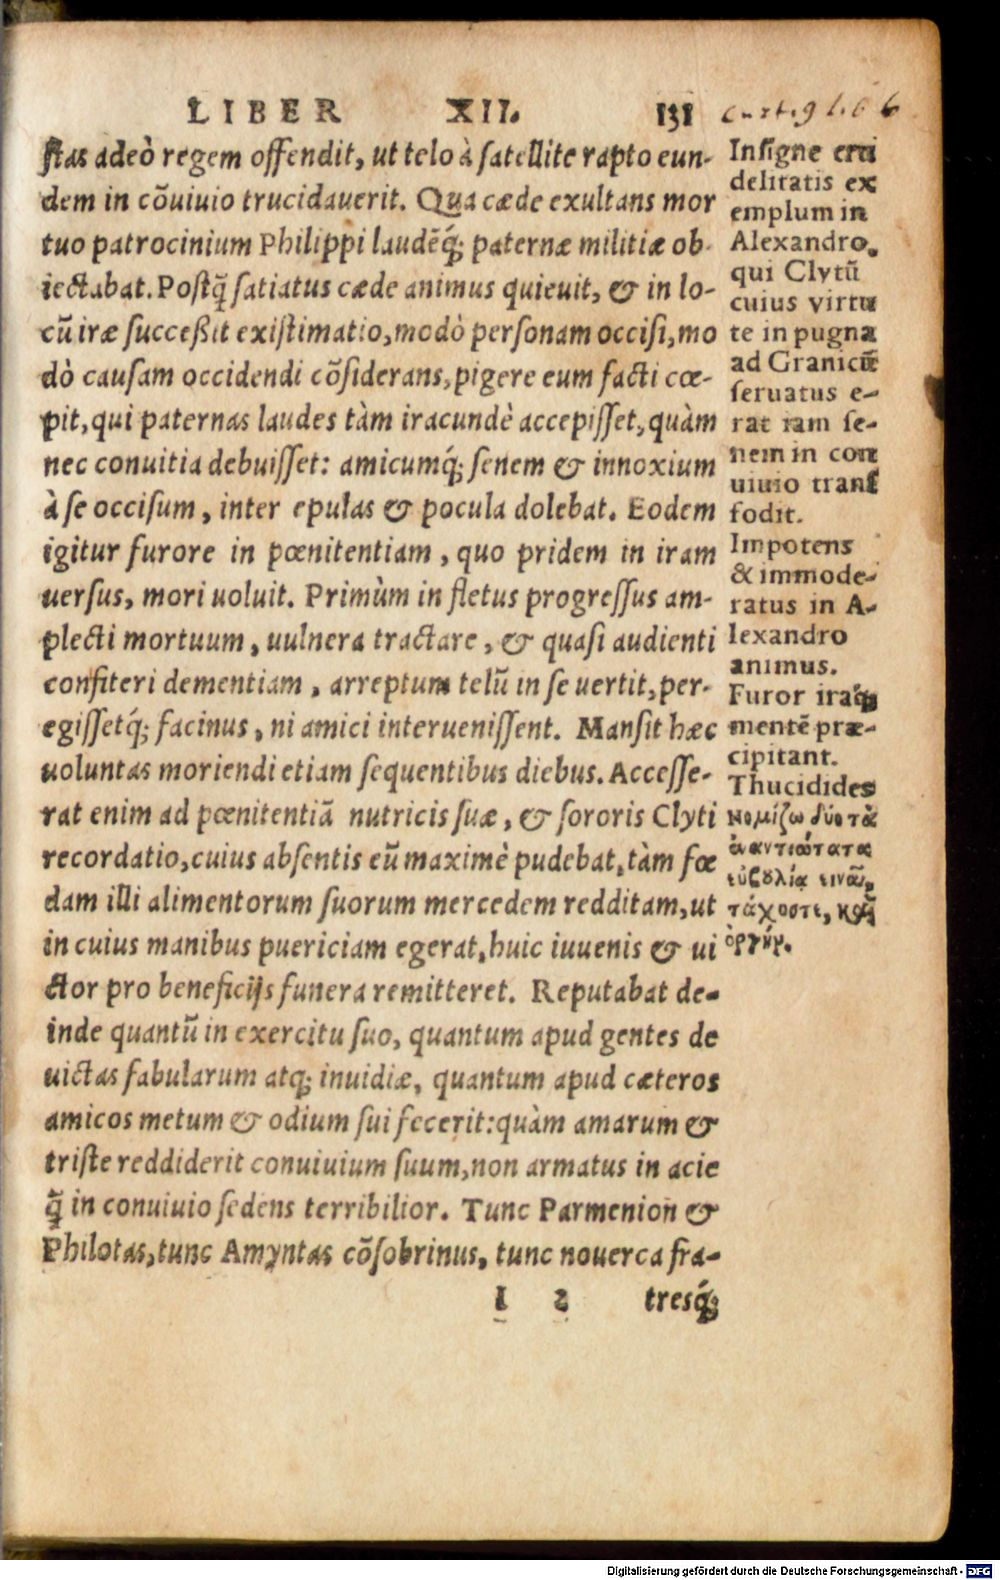 LIBER XII. 131
stas adeò regem offendit, ut telo à satellite rapto eun-
dem in cõuiuio trucidauerit. Qua cæde exultans mor
tuo patrocinium Philippi laudẽq́; paternæ militiæ ob-
iectabat. Postq̃ satiatus cæde animus quieuit, & in lo-
cũ iræ succeßit existimatio, modò personam occisi, mo
dò causam occidendi cõsiderans, pigere eum facti cœ-
pit, qui paternas laudes tàm iracundè accepisset, quàm
nec conuitia debuisset: amicumq́; senem & innoxium
à se occisum, inter epulas & pocula dolebat. Eodem
igitur furore in pœnitentiam, quo pridem in iram
uersus, mori uoluit. Primùm in fletus progressus am-
plecti mortuum, uulnera tractare, & quasi audienti
confiteri dementiam, arreptum telũ in se uertit, per-
egissetq́; facinus, ni amici interuenissent. Mansit hæc
uoluntas moriendi etiam sequentibus diebus. Accesse-
rat enim ad pœnitentiã nutricis suæ, & sororis Clyti
recordatio, cuius absentis eũ maximè pudebat, tàm fœ
dam illi alimentorum suorum mercedem redditam, ut
in cuius manibus puericiam egerat, huic iuuenis & ui
ctor pro beneficijs funera remitteret. Reputabat de-
inde quantũ in exercitu suo, quantum apud gentes de
uictas fabularum atq; inuidiæ, quantum apud cæteros
amicos metum & odium sui fecerit: quàm amarum &
triste reddiderit conuiuium suum, non armatus in acie
q̃ in conuiuio sedens terribilior. Tunc Parmenion &
Philotas, tunc Amyntas cõsobrinus, tunc nouerca fra-
I 2 tresq́;
Insigne cru
delitatis ex
emplum in
Alexandro,
qui Clytũ
cuius virtu
te in pugna
ad Granicũ
seruatus e-
rat iam se-
nem in con
uiuio transf
fodit.
Impotens
& immode-
ratus in A-
lexandro
animus.
Furor iraq́;
mentẽ præ-
cipitant.
Thucidides
νομίζω δύο τὰ
ἐναντιώτατα
εὐβουλίᾳ εἶναι,
τάχοστε, καὶ
ὀργήν.
Digitalisierung gefördert durch die Deutsche Forschungsgemeinschaft - DFG